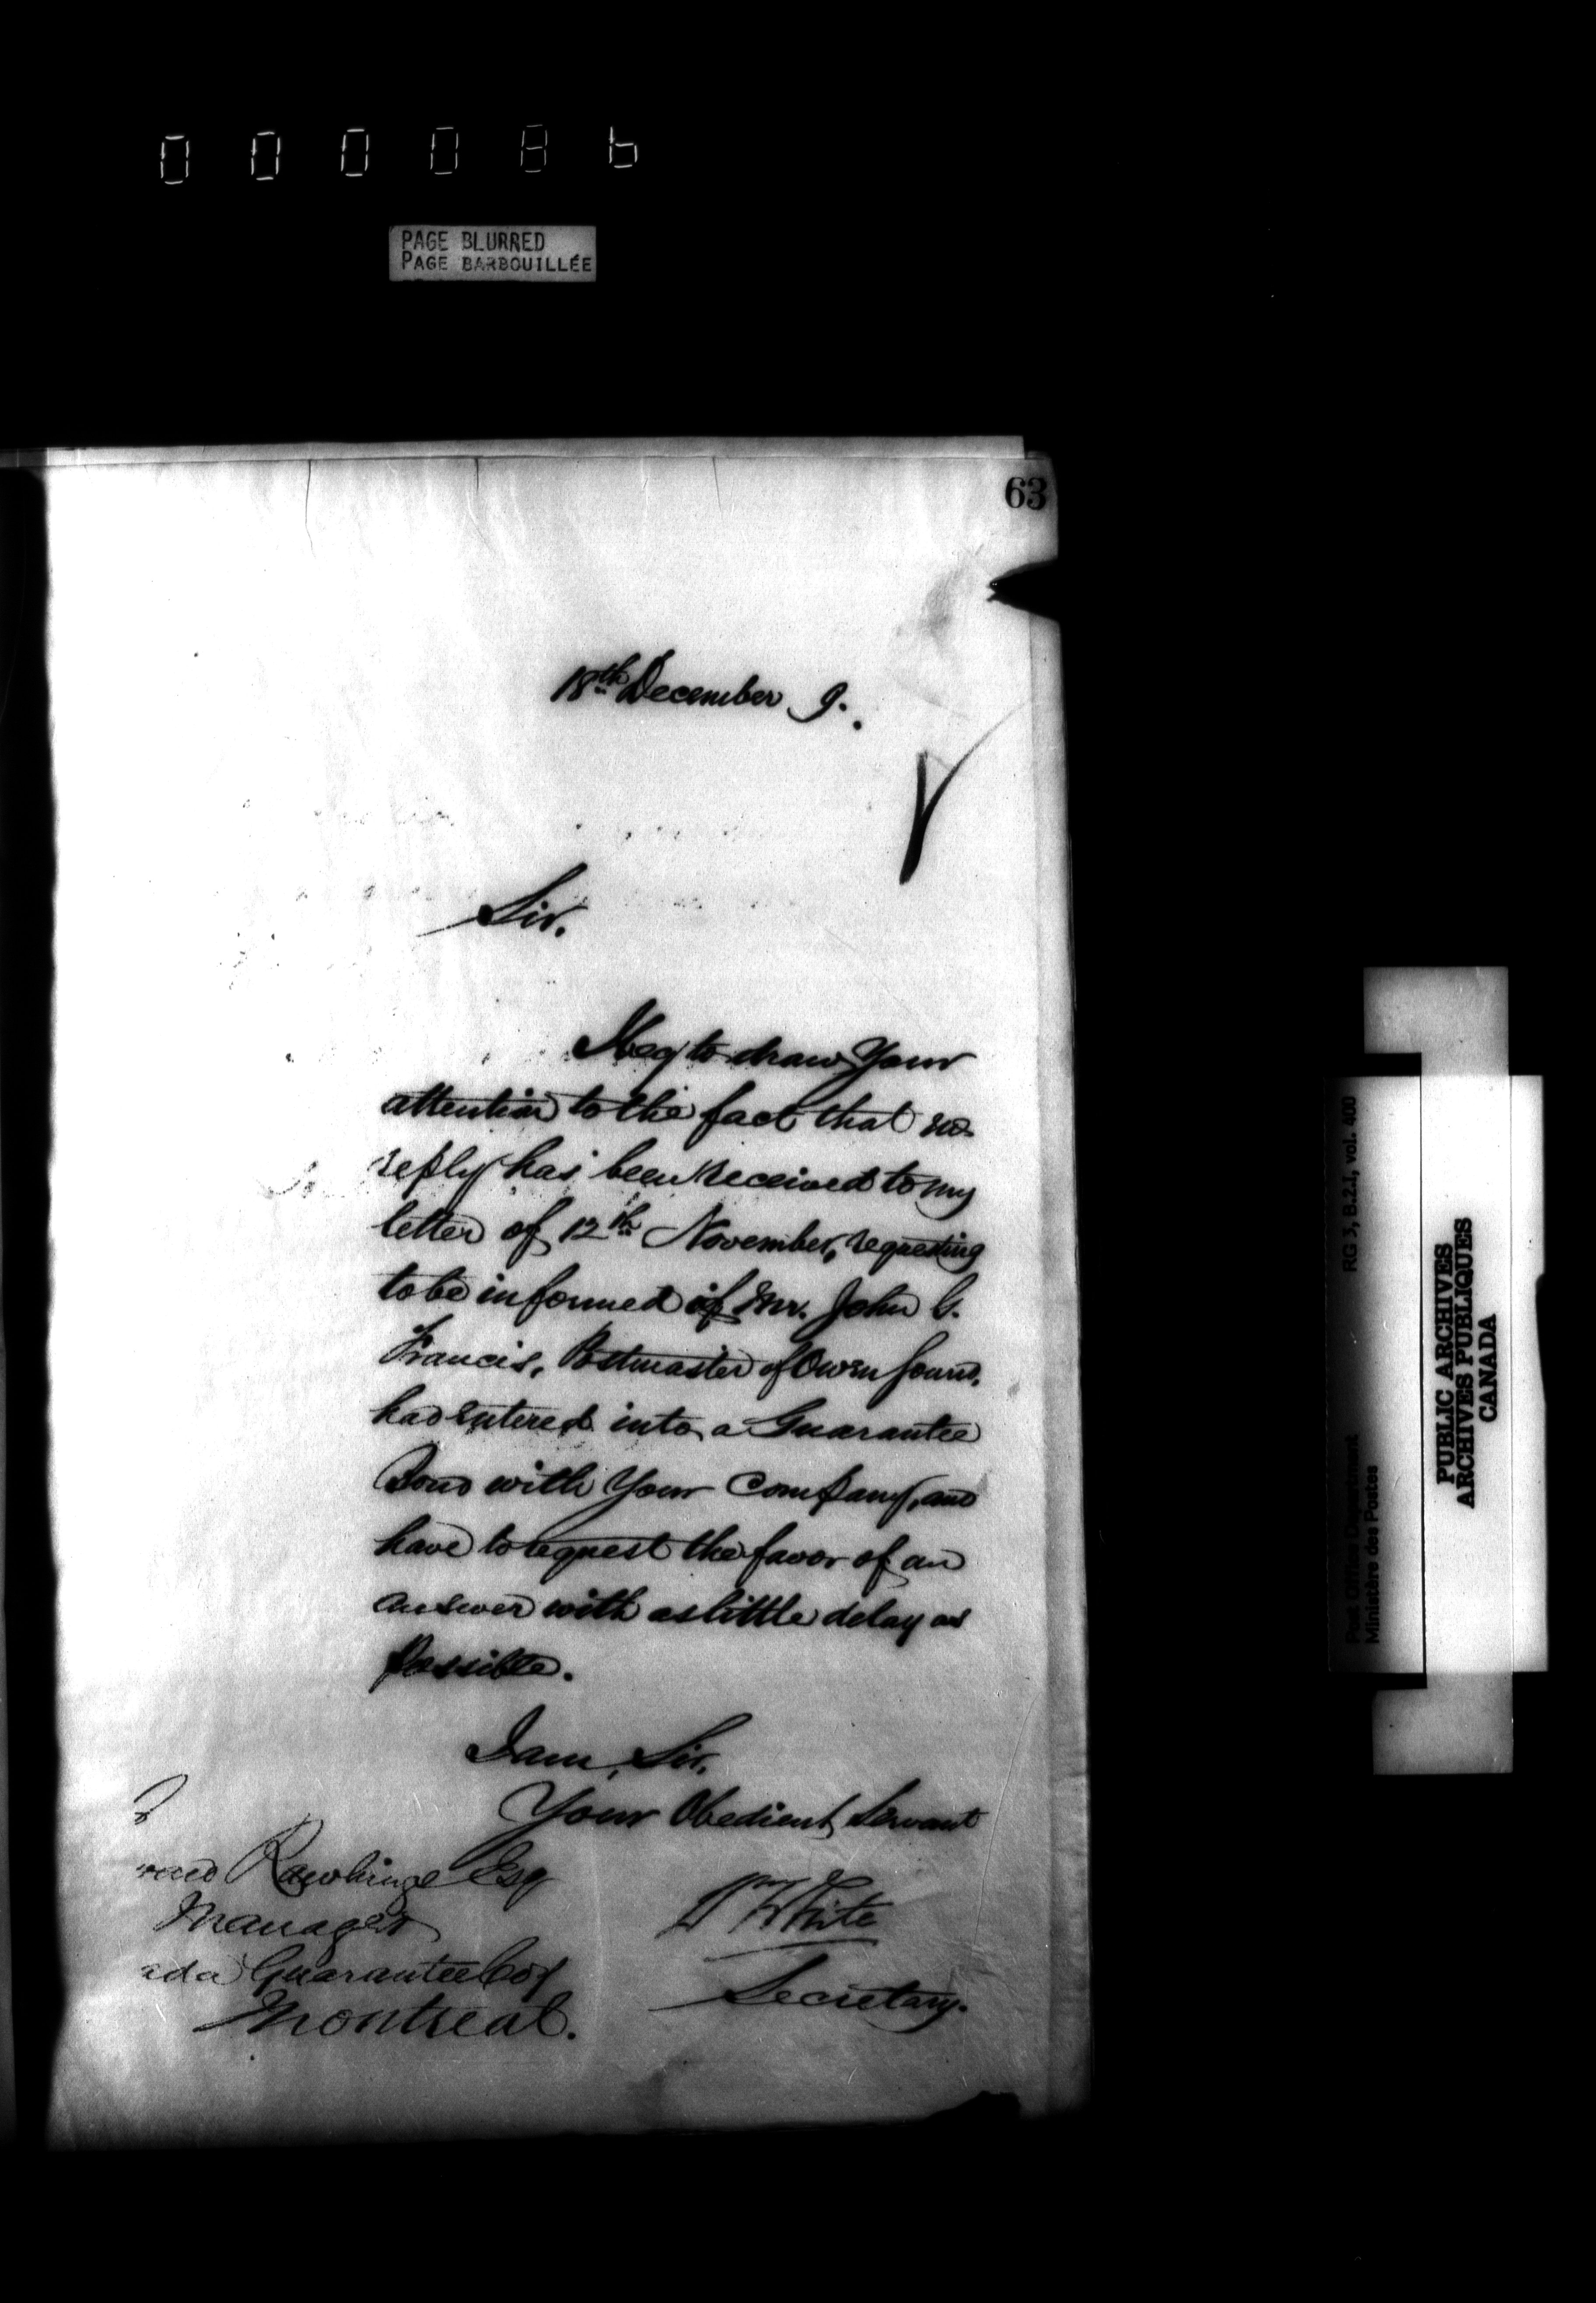 000086
PAGE BLURRED
PAGE BARBOUILLÉE
63
18th December 9.
Sir.
I beg to draw Your
attention to the fact that no
reply has been received to my
letter of 12th November, requesting
to be informed if Mr. John G.
Francis, Postmaster of Owen Sound,
had entered into a Guarantee
Bond with Your Company, and
have to request the favor of an
answer with as little delay as
possible.
I am, Sir,
Your Obedient Servant
Wm White
Secretary.
Rawlings Esq
Manager
ada Guarantee Coy
Montreal.
RG 3, B.2.1, vol. 400
Post Office Department
Ministère des Postes
PUBLIC ARCHIVES
ARCHIVES PUBLIQUES
CANADA